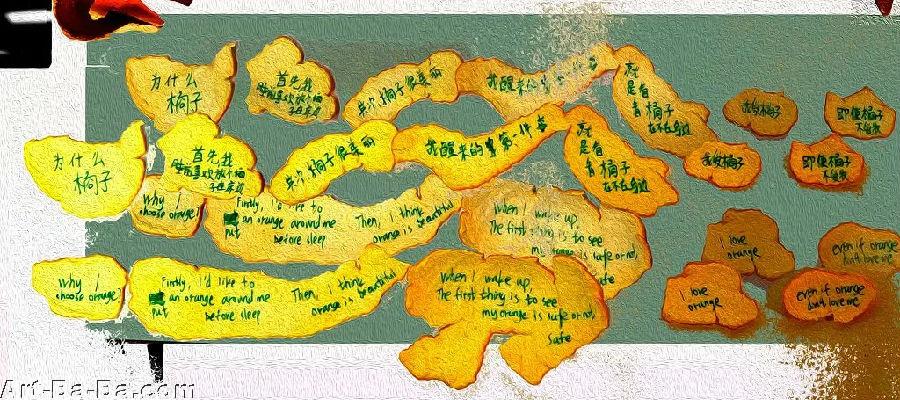 为什么
橘子
首先我
睡前喜欢放个橘
子在床边
其次橘子很美丽
我醒来的第一件事
就
是看
看橘子
在不在身边
我爱橘子
即使橘子
不爱我
为什么
橘子
首先我
睡前喜欢放个橘
子在床边
其次橘子很美丽
我醒来的第一件事
就
是看
看橘子
在不在身边
我爱橘子
即使橘子
不爱我
why I
choose orange?
Firstly, I'd like to
put an orange around me
before sleep
Then, I think
orange is beautiful
when I wake up,
The first thing is to see
my orange is safe or not,
safe
I love
orange
even if orange
don't love me
why I
choose orange?
Firstly, I'd like to
put an orange around me
before sleep
Then, I think
orange is beautiful
when I wake up,
The first thing is to see
my orange is safe or not,
safe
I love
orange
even if orange
don't love me
Art-Ba-Ba.com